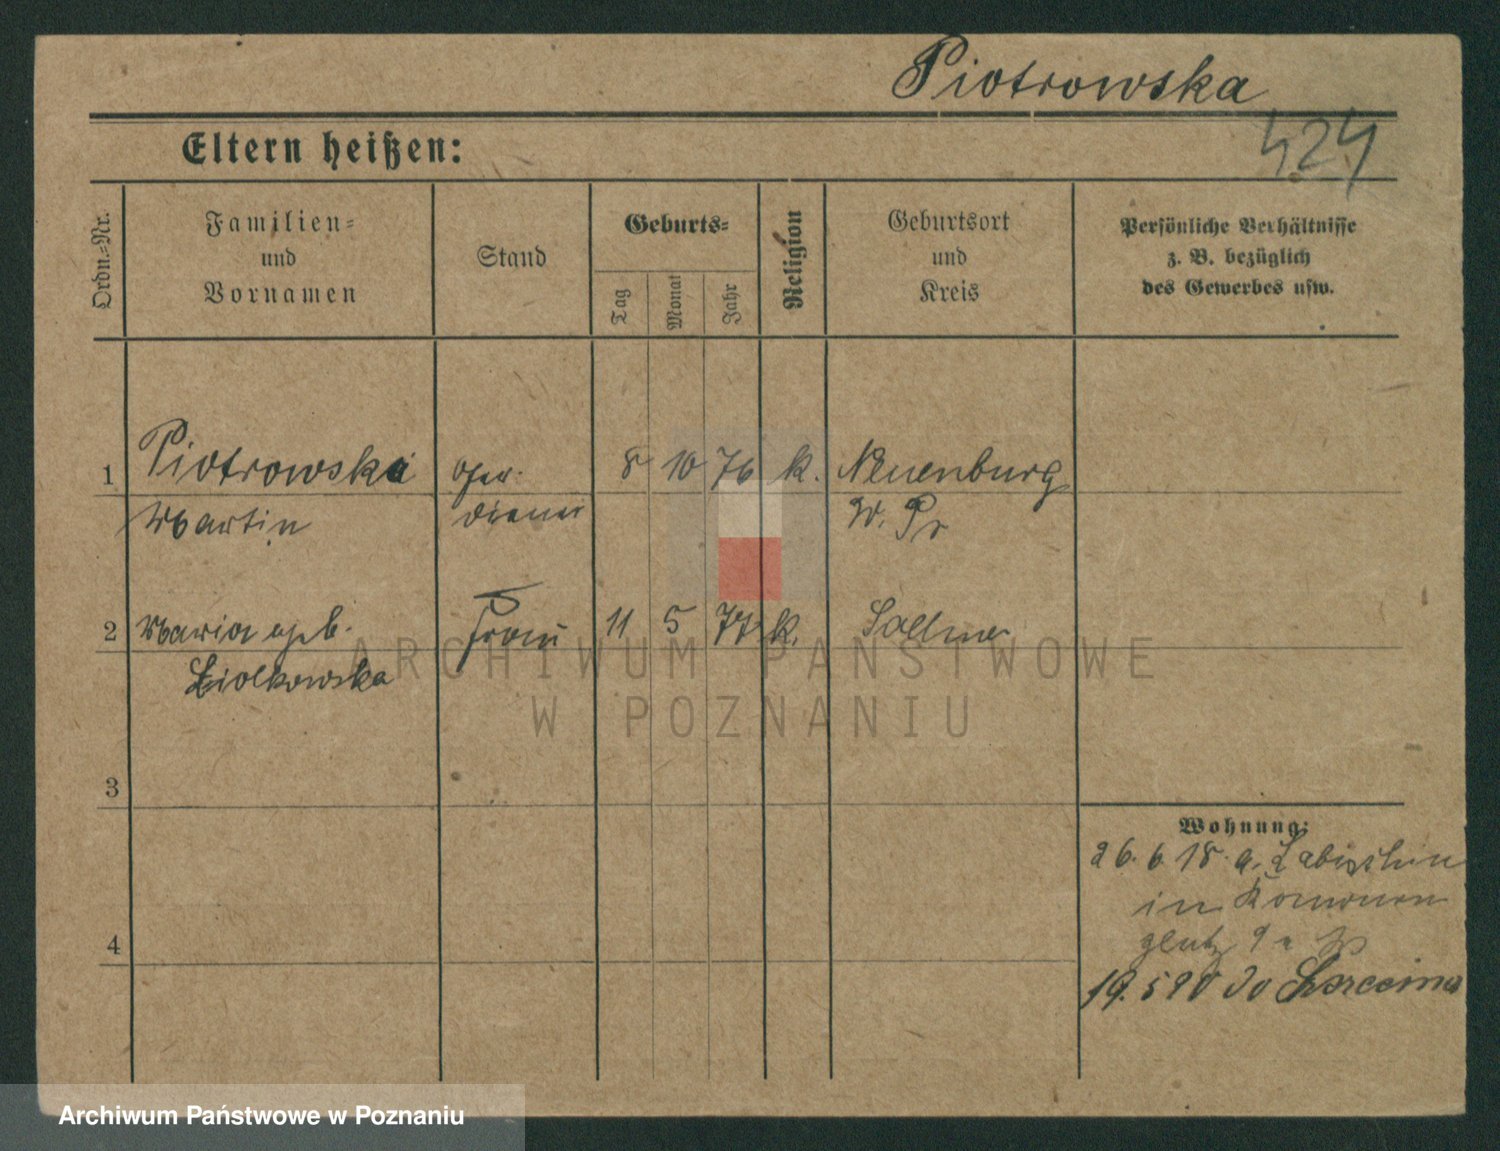 Piotrowska
424
Eltern heißen:
Ordn.-Nr.
Familien-
und
Vornamen
Stand
Geburts-
Tag
Monat
Jahr
Religion
Geburtsort
und
Kreis
Persönliche Verhältnisse
z. B. bezüglich
des Gewerbes usw.
1 Piotrowski 8 10 76 k. Neuenburg
Martin W. Pr
2 Maria geb. Frau 11 5 77 k.
Ziolkowska
3
4
Wohnung:
26. 6. 18. a. Labischin
in
19. 5 20 do
ARCHIWUM PAŃSTWOWE
W POZNANIU
Archiwum Państwowe w Poznaniu